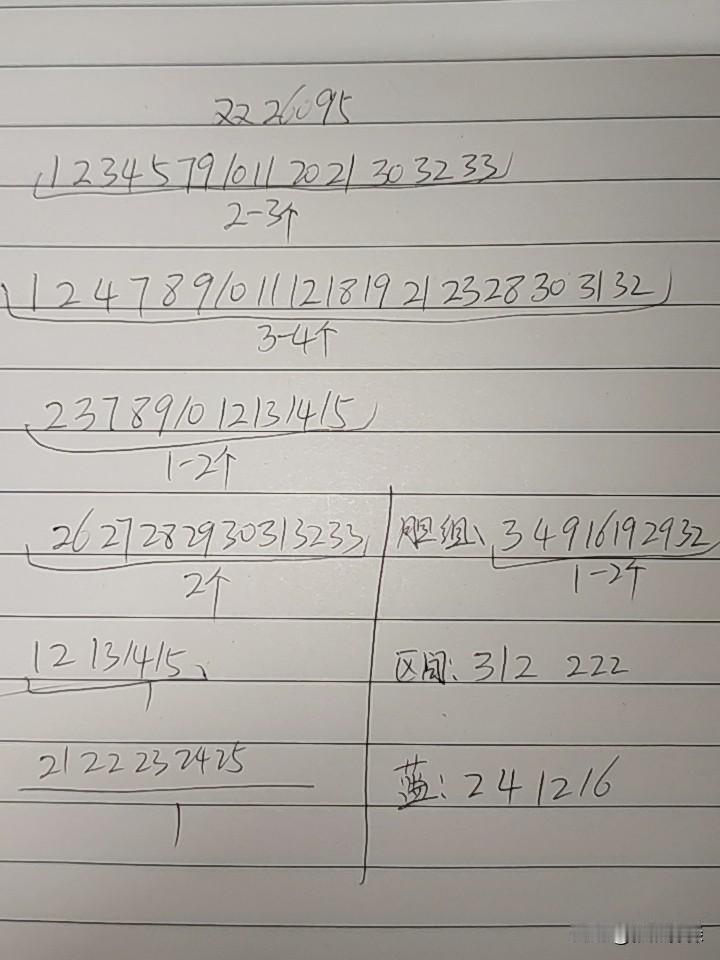 2226095
1 2 3 4 5 7 9 10 11 20 21 30 32 33
2-3个
1 2 4 7 8 9 10 11 12 18 19 21 23 28 30 31 32
3-4个
2 3 7 8 9 10 12 13 14 15
1-2个
26 27 28 29 30 31 32 33
2个
胆组、3 4 9 16 19 29 32
1-2个
12 13 14 15、
1
区间:312 222
21 22 23 24 25
1
蓝:2 4 12 16